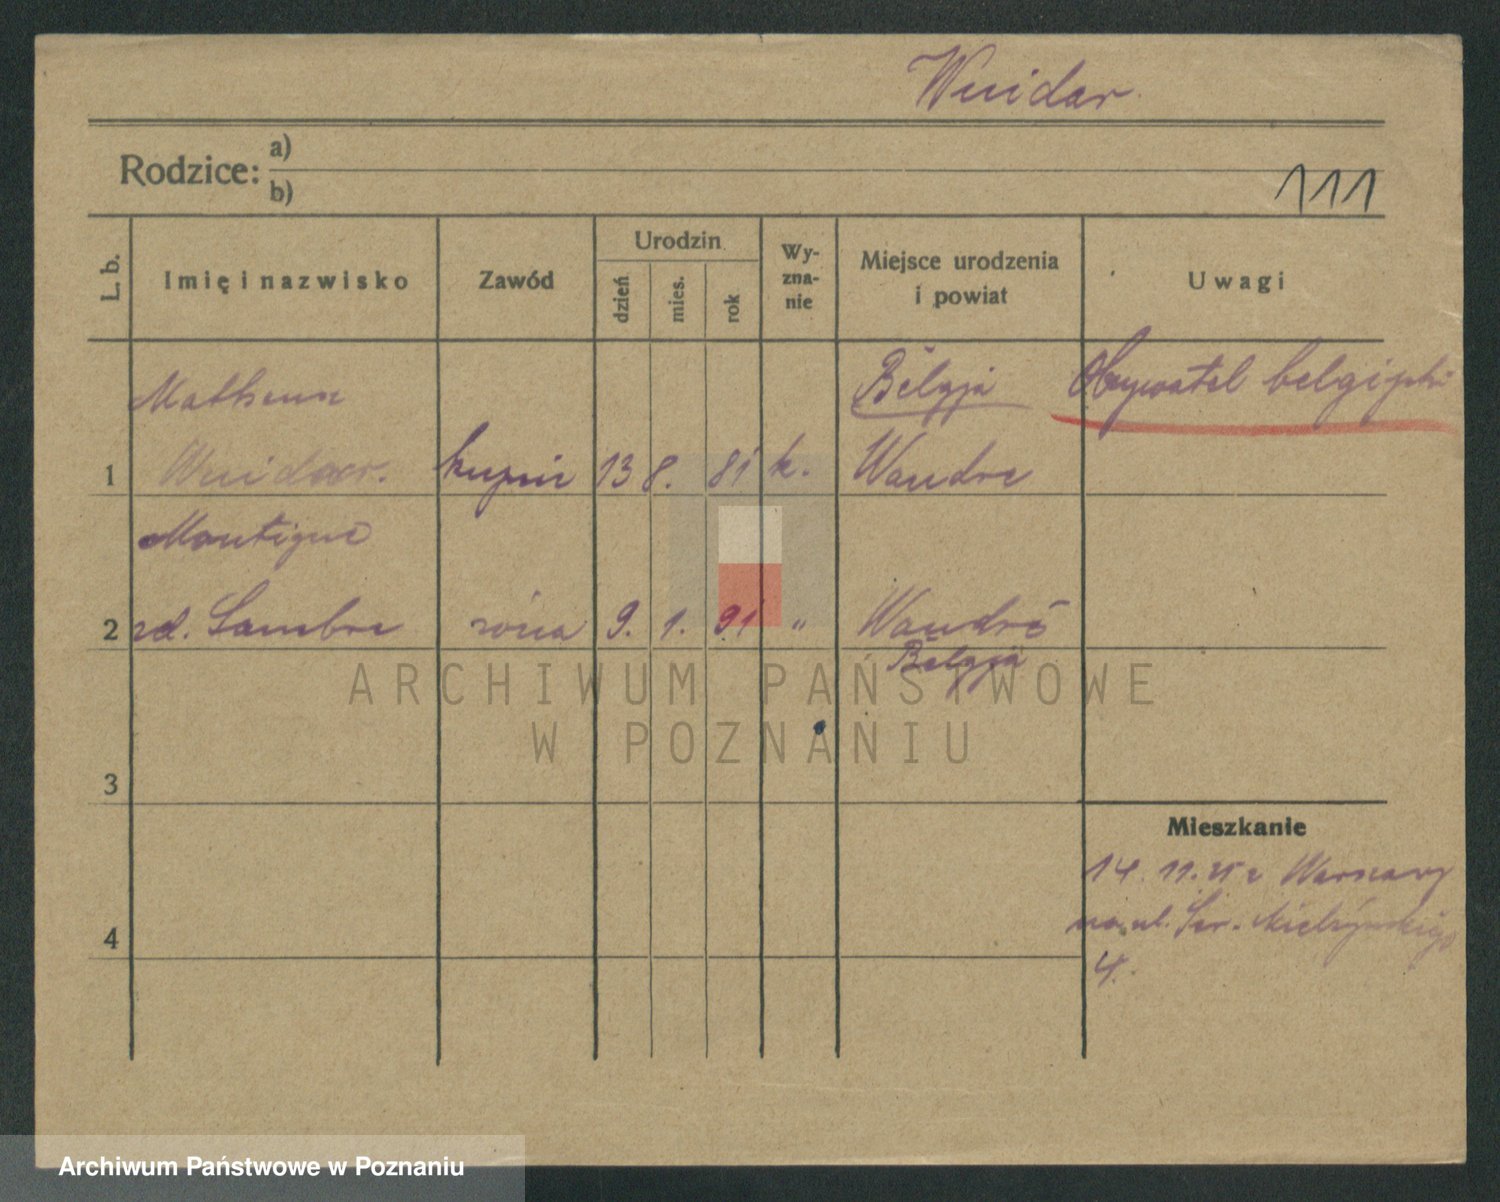 Wuidar.
Rodzice: a)
b)
111
L. b.
Imię i nazwisko
Zawód
Urodzin
dzień
mies.
rok
Wy-
zna-
nie
Miejsce urodzenia
i powiat
Uwagi
Belgja
Obywatel belgijski
1
Wuidar.
kupiec
13
8.
81
k.
Wandre
2
Montigne
zd. Lambre
żona
9.
1.
91
"
Wandré
Belgja
3
4
Mieszkanie
14. 11. 25 z Warszawy
na ul. Sew. Mielżyńskiego
4.
ARCHIWUM PAŃSTWOWE
W POZNANIU
Archiwum Państwowe w Poznaniu